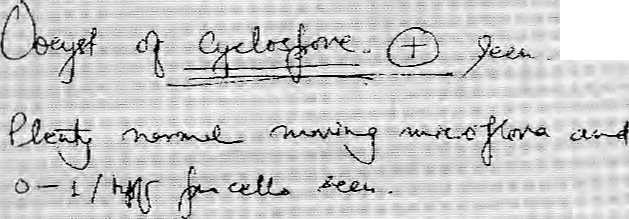 Oocyst of Cyclospora. (+) seen.
Plenty normal moving microflora and
0-1/hpf pus cells seen.